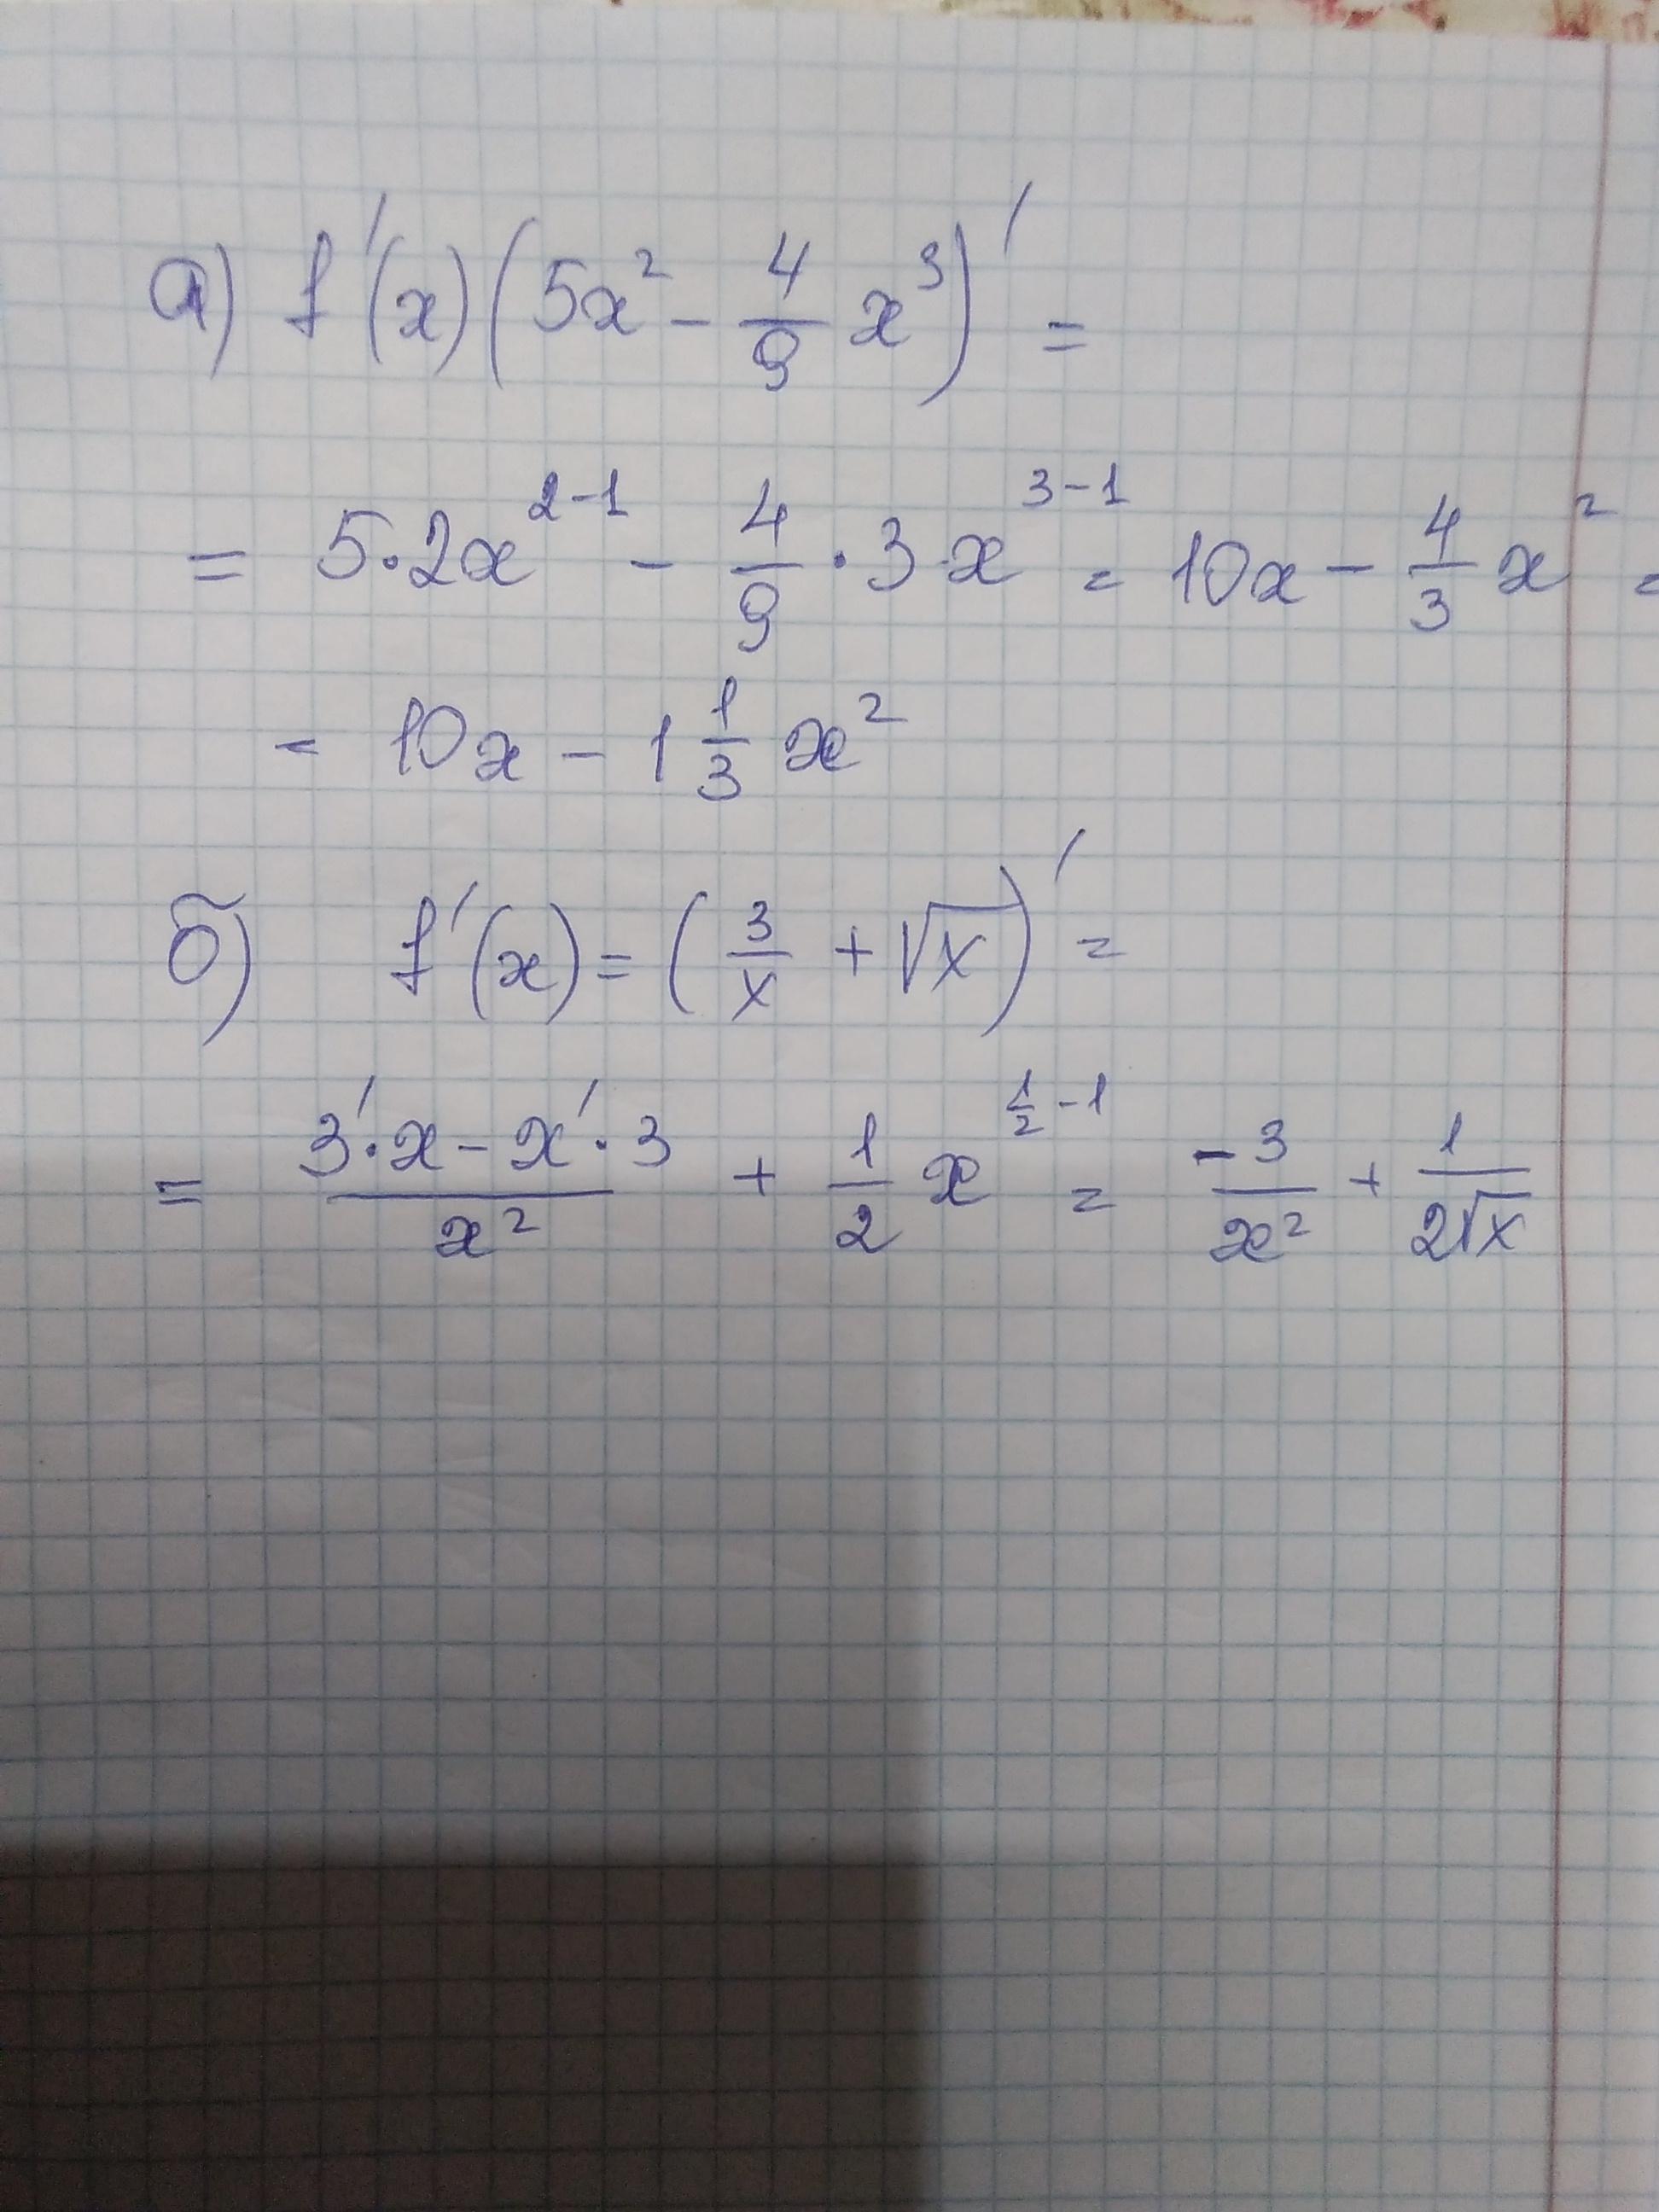 а) f'(x)(5x² - 4/9 x³)' =
= 5·2x^(2-1) - 4/9 · 3·x^(3-1) = 10x - 4/3 x² =
= 10x - 1 1/3 x²
б) f'(x) = (3/x + √x)' =
= (3'·x - x'·3)/x² + 1/2 x^(1/2 - 1) = -3/x² + 1/(2√x)